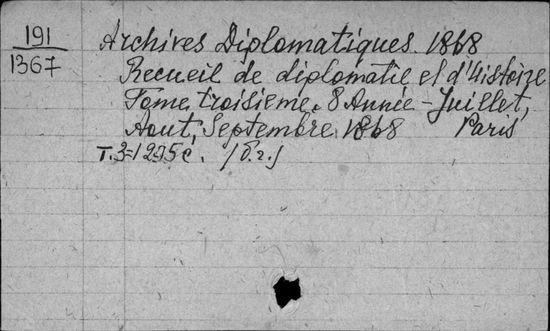 191
1367
Archives Diplomatiques. 1868
Recueil de diplomatie et d'Histoire
Tome troisieme. 8 Année - Juillet,
Aout, Septembre 1868 Paris
T. 3=1295 c. /б.г./